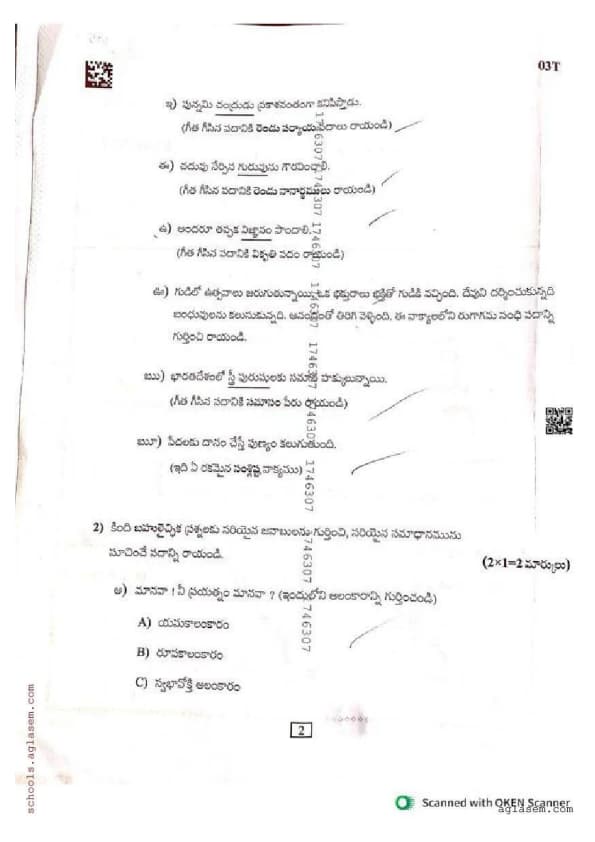 03T
ఇ) పున్నమి చంద్రుడు ప్రకాశవంతంగా కనిపిస్తాడు.
(గీత గీసిన పదానికి రెండు పర్యాయపదాలు రాయండి)
ఈ) చదువు నేర్పిన గురువును గౌరవించాలి.
(గీత గీసిన పదానికి రెండు నానార్థములు రాయండి)
ఉ) అందరూ తప్పక విజ్ఞానం పొందాలి.
(గీత గీసిన పదానికి వికృతి పదం రాయండి)
ఊ) గుడిలో ఉత్సవాలు జరుగుతున్నాయి. ఒక భక్తురాలు భక్తితో గుడికి వచ్చింది. దేవుని దర్శించుకున్నది
బంధువులను కలుసుకున్నది. ఆనందంతో తిరిగి వెళ్ళింది. ఈ వాక్యాలలోని రుగాగమ సంధి పదాన్ని
గుర్తించి రాయండి.
ఋ) భారతదేశంలో స్త్రీ పురుషులకు సమాన హక్కులున్నాయి.
(గీత గీసిన పదానికి సమాసం పేరు రాయండి)
ౠ) పేదలకు దానం చేస్తే పుణ్యం కలుగుతుంది.
(ఇది ఏ రకమైన సంశ్లిష్ట వాక్యము)
1746307 1746307 1746307 1746307 1746307 1746307 1746307 1746307
2) కింది బహుళైచ్ఛిక ప్రశ్నలకు సరియైన జవాబులను గుర్తించి, సరియైన సమాధానమును
సూచించే పదాన్ని రాయండి.
(2×1=2 మార్కులు)
అ) మానవా ! నీ ప్రయత్నం మానవా ? (ఇందులోని అలంకారాన్ని గుర్తించండి)
A) యమకాలంకారం
B) రూపకాలంకారం
C) స్వభావోక్తి అలంకారం
2
schools.aglasem.com
Scanned with OKEN Scanner
aglasem.com